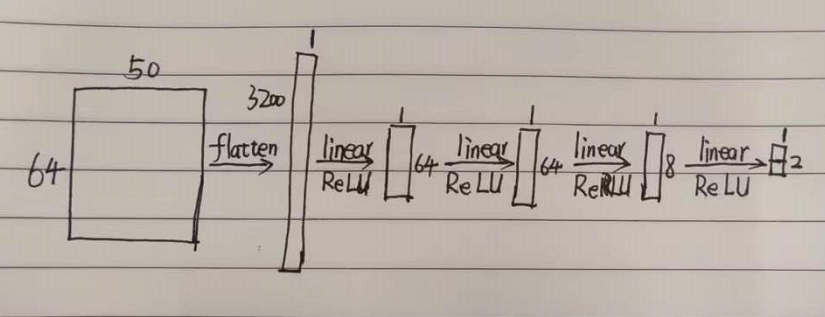 50
64
flatten
1
3200
linear
ReLU
1
64
linear
ReLU
1
64
linear
ReLU
1
8
linear
ReLU
1
2